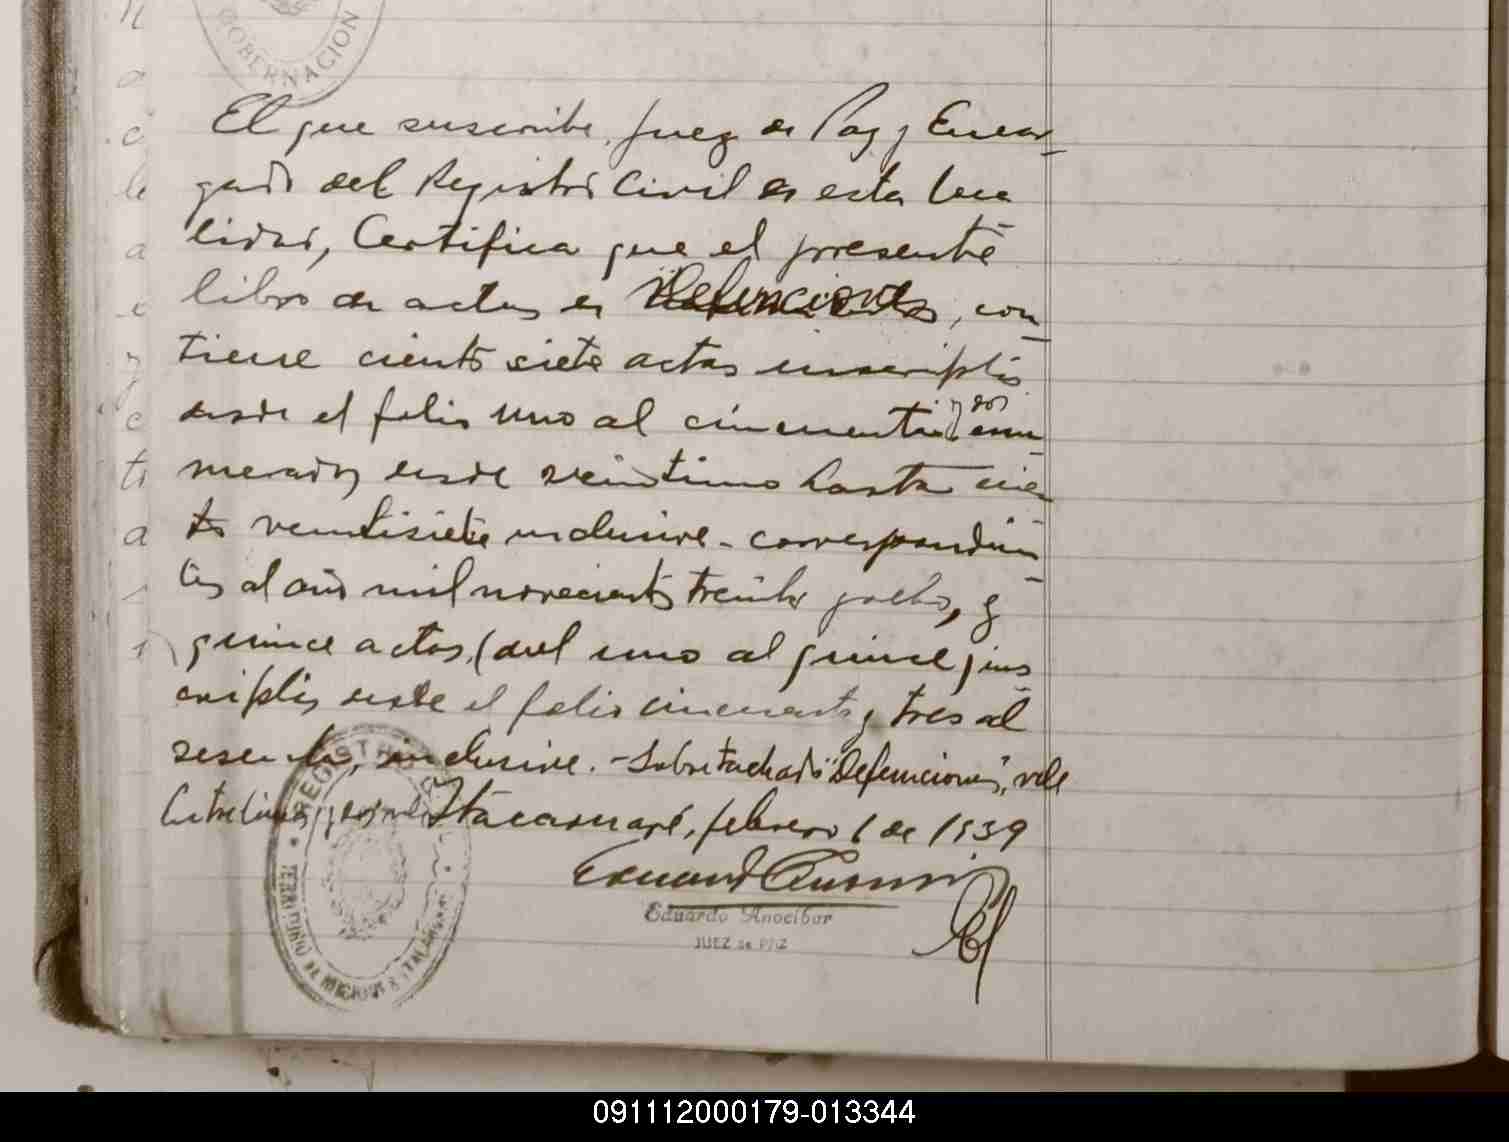 GOBERNACION
El que suscribe, Juez de Paz y Encar-
gado del Registro Civil de esta loca
lidad, Certifica que el presente
libro de actas de Defunciones, con-
tiene ciento siete actas inscriptas
desde el folio uno al cincuenta y dos enu-
meradas desde veintiuno hasta cien
to veintisiete inclusive - correspondien-
tes al año mil novecientos treinta y ocho, y
quince actas, (del uno al quince) ins-
criptas desde el folio cincuenta y tres al
sesenta, inclusive. - Sobre tachado "Defunciones", vale
Entre lineas y dos vale Itacaruaré, febrero 1 de 1939
Eduardo Anocibar
JUEZ de PAZ
REGISTRO
TERRITORIO DE MISIONES
091112000179-013344